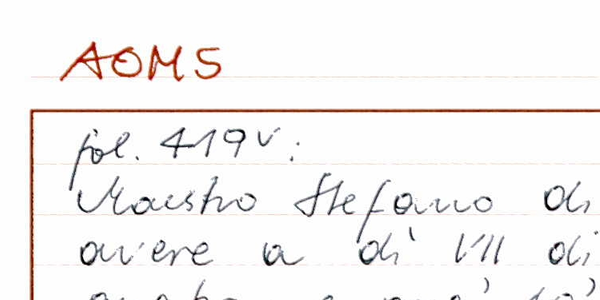 AOMS
fol. 419v:
Maestro Stefano di
avere a dì VII di